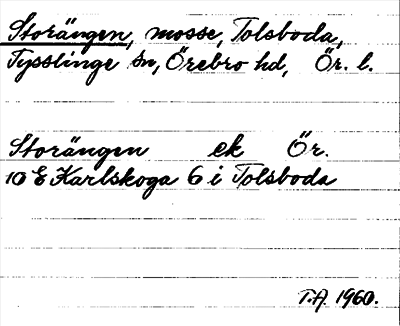 Storängen, mosse, Tolsboda,
Tysslinge sn, Örebro hd, Ör. l.
Storängen ek Ör.
10 E Karlskoga 6 i Tolsboda
T.A. 1960.